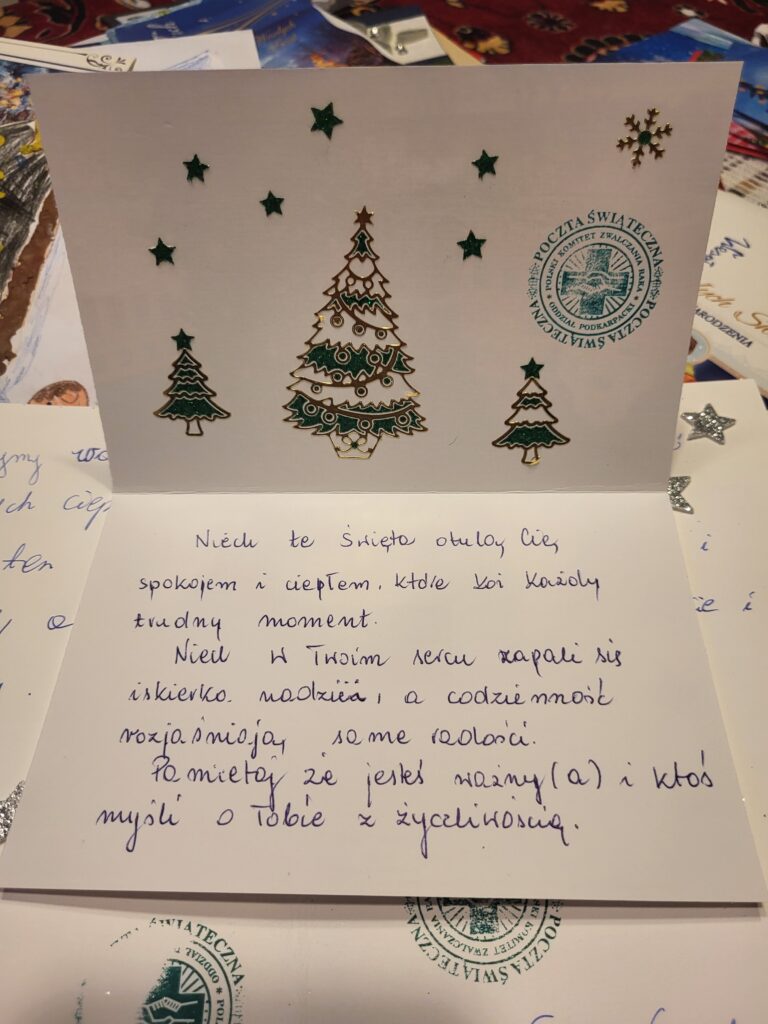 POCZTA ŚWIĄTECZNA
POLSKI KOMITET ZWALCZANIA RAKA
ODDZIAŁ PODKARPACKI
POCZTA ŚWIĄTECZNA
ARODZENIA
Niech te Święta otulą Cię
spokojem i ciepłem, które koi każdy
trudny moment.
Niech w Twoim sercu zapali się
iskierka nadziei, a codzienność
rozjaśniają same radości.
Pamietaj że jesteś ważny(a) i ktoś
myśli o Tobie z życzliwością.
ten
POCZTA ŚWIĄTECZNA
ŚWIĄTECZNA